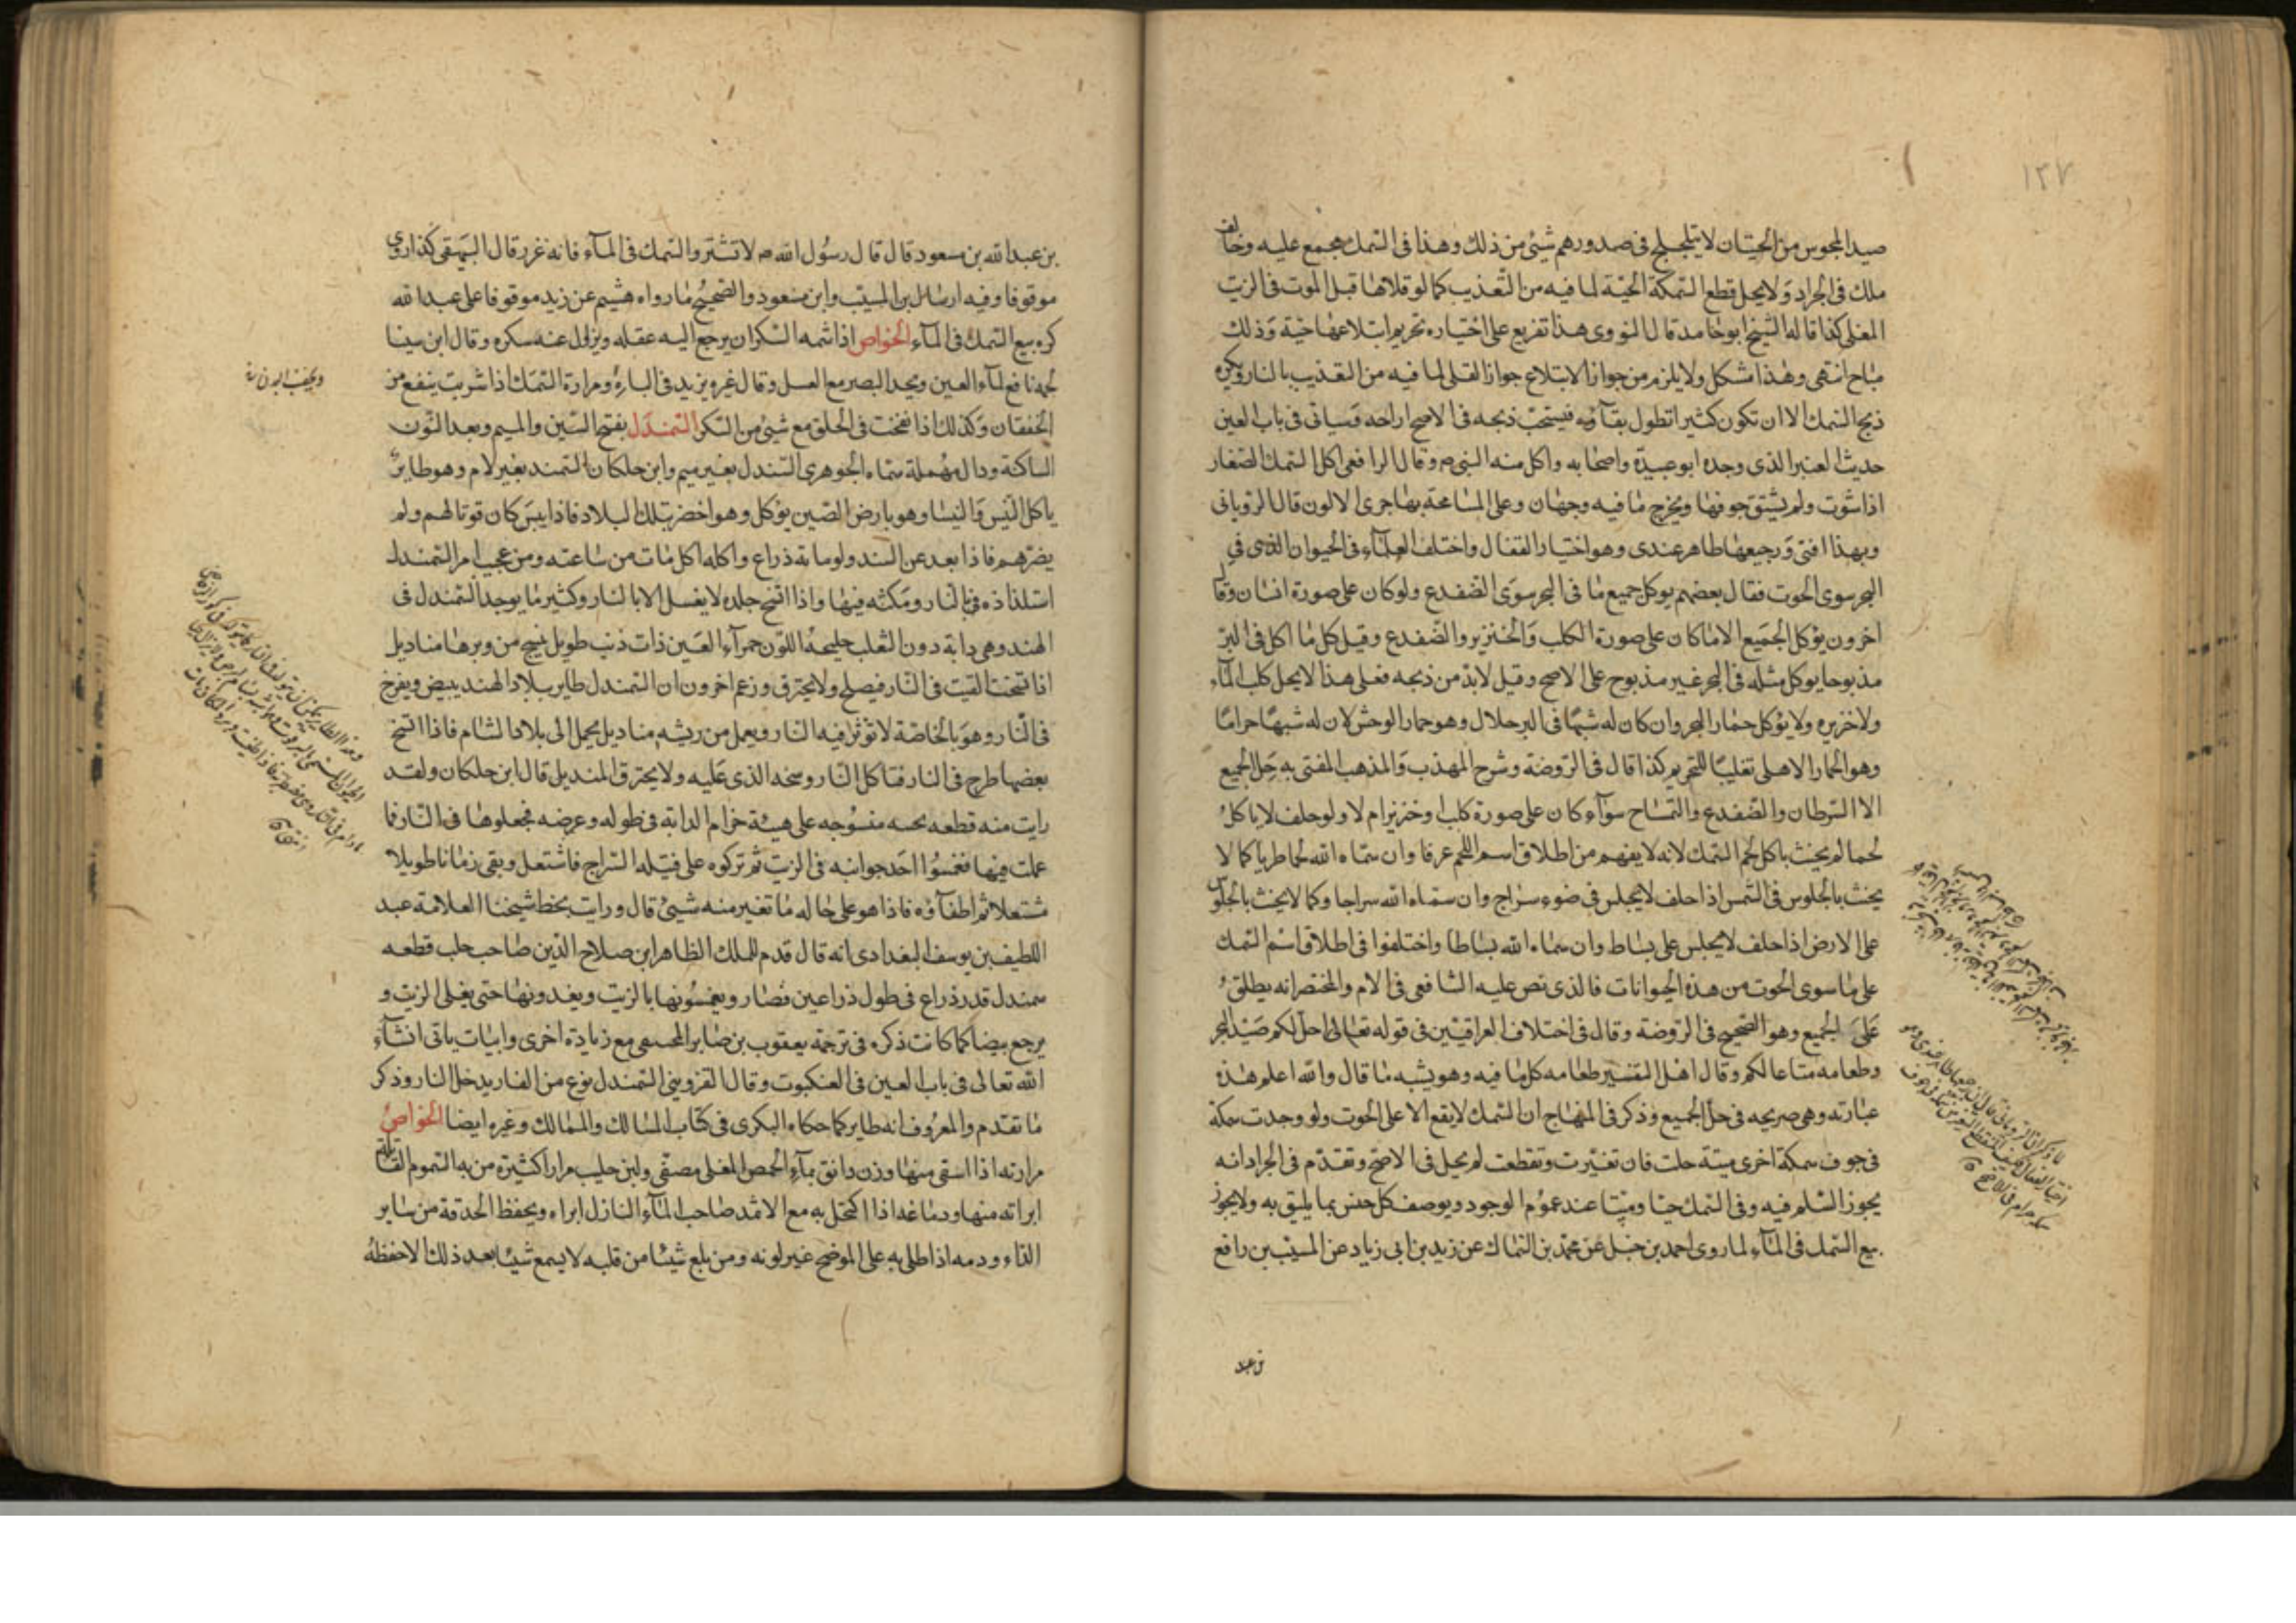 ١٣٧
صيد المجوس من الحيتان لا يتلجلج في صدورهم شيئ من ذلك وهذا في السمك مجمع عليه وخالف
ملك في الجراد ولا يحل قطع السمكة الحيّة لما فيه من التّعذيب كما لو قلاها قبل الموت في الزيت
المغلي كذا قاله الشيخ ابو حامد قال النووي هذا تفريع على اختياره تحريم ابتلاعها حيّة وذلك
مباح انتهى وهذا مشكل ولا يلزم من جواز الابتلاع جواز القلي لما فيه من التعذيب بالنار ويكره
ذبح السمك الا ان تكون كثيرا تطول بقآؤه فيستحبّ ذبحه في الاصح اراحه وسياتي في باب العين
حديث العنبر الذي وجده ابو عبيدة واصحابه واكل منه النبي ص وقال الرافعي اكل السمك الصّغار
اذا شوت ولم يشتق جوفها ويخرج ما فيه وجهان وعلى المسامحة بها جرى الالون قال الروياني
وبهذا افتى ورجيعها طاهر عندي وهو اختيار القفال واختلف العلمآء في الحيوان الذي في
البحر سوى الحوت فقال بعضهم يوكل جميع ما في البحر سوى الضفدع ولو كان على صورة انسان وقا
اخرون يؤكل الجميع الا ما كان على صورة الكلب والخنزير والضّفدع وقيل كل ما اكل في البرّ
مذبوحا يوكل مثله في البحر غير مذبوح على الاصح وقيل لا بدّ من ذبحه فعلى هذا لا يحل كلب المآء
ولا خزيره ولا يؤكل حمار البحر وان كان له شبها في البر حلال وهو حمار الوحش لان له شبهًا حرامًا
وهو الحمار الاهلي تغليبًا للتحريم كذا قال في الرّوضة وشرح المهذب والمذهب المفتى به حلّ الجميع
الا السّرطان والضّفدع والتمساح سوآء كان على صورة كلب او خنزير ام لا ولو حلف لا ياكل
لحما لم يحنث باكل لحم السمك لانه لا يفهم من اطلاق اسم اللحم عرفا وان سمّاه الله لحما طريا كما لا
يحنث بالجلوس في الشمس اذا حلف لا يجلس في ضوء سراج وان سمّاه الله سراجا وكما لا يحنث بالجلوس
على الارض اذا حلف لا يجلس على بساط وان سماه الله بساطا واختلفوا في اطلاق اسم السمك
على ما سوى الحوت من هذه الحيوانات فالذي نص عليه الشافعي في الام والمختصر انه يطلق
على الجميع وهو الصّحيح في الرّوضة وقال في اختلاف العراقيّين في قوله تعالى احلّ لكم صيد البحر
وطعامه متاعا لكم وقال اهل التفسير طعامه كل ما فيه وهو يشبه ما قال والله اعلم هذه
عبارته وهي صريحه في حلّ الجميع وذكر في المنهاج ان السّمك لا يقع الا على الحوت ولو وجدت سمكة
في جوف سمكة اخرى ميتة حلت فان تغيّرت وتقطعت لم يحل في الاصحّ وتقدّم في الجراد انه
يجوز السّلم فيه وفي السّمك حيّا وميّتا عند عموم الوجود ويوصف كل جنس بما يليق به ولا يجوز
بيع السّمك في المآء لما روى احمد بن حنبل عن محمّد بن السّماك عن زيد بن ابي زياد عن المسيّب بن رافع
بن عبد
بن عبد الله بن مسعود قال قال رسول الله ص لا تشتروا السّمك في المآء فانه غرر قال البيهقي كذا روي
موقوفا وفيه ارسال بن المسيّب وابن مسعود والصّحيح ما رواه هشيم عن زيد موقوفا على عبد الله
كره بيع السّمك في المآء الخواص اذا شمه السّكران يرجع اليه عقله ويزول عنه سكره وقال ابن سينا
لحمه نافع لمآء العين ويحد البصر مع العسل وقال غيره يزيد في الباه ومرارة السّمك اذا شربت ينفع من
الخفقان وكذلك اذا نفخت في الحلق مع شيئ من السّكر السّمندل بفتح السّين والميم وبعد النّون
الساكنة ودال مهملة سمّاه الجوهري السّندل بغير ميم وابن خلكان السّمند بغير لام وهو طاير
ياكل البيس والبيشا وهو بارض الصّين يؤكل وهو اخضر بتلك البلاد فاذا يبس كان قوتا لهم ولم
يضرّهم فاذا بعد عن السند ولو ماية ذراع واكله اكل مات من ساعته ومن عجيب امر السّمندل
استلذاذه في النّار ومكثه فيها واذا اتسخ جلده لا يغسل الا بالنار وكثير ما يوجد السّمندل في
الهند وهي دابة دون الثعلب خليجه اللّون حمرآء العين ذات ذنب طويل ينسج من وبرها مناديل
اذا تسخت القيت في النّار فيصلح ولا يحترق وزعم اخرون ان السّمندل طاير ببلاد الهند يبيض ويفرخ
في النّار وهو بالخاصّة لا تؤثر فيه النّار ويعمل من ريشه مناديل يحمل الى بلاد الشام فاذا اتسخ
بعضها طرح في النار فتاكل النّار وسخه الذي عليه ولا يحترق المنديل قال ابن خلكان ولقد
رايت منه قطعه نحسه منسوجه على هيئة حزام الدابّة في طوله وعرضه فجعلوها في النّار فما
عملت فيها فغمسوا احد جوانبه في الزيت ثم تركوه على فتيله السّراج فاشتعل وبقي زمانا طويلا
مشتعلا ثم اطفآؤه فاذا هو على حاله ما تغير منه شيئ قال ورايت بخط شيخنا العلامة عبد
اللطيف بن يوسف البغدادي انه قال قدم للملك الظاهر ابن صلاح الدّين صاحب حلب قطعه
سمندل قدر ذراع في طول ذراعين فصار ويغمسونها بالزيت ويقدونها حتى يغلى الزيت و
يرجع بيضا كما كانت ذكره في ترجمة يعقوب بن صابر المحسعى مع زيادة اخرى وابيات ياتي انشآء
الله تعالى في باب العين في العنكبوت وقال القزويني السّمندل نوع من الفار يدخل النار وذكر
ما تقدّم والمعروف انه طاير كما حكاه البكري في كتاب المسالك والممالك وغيره ايضا الخواصّ
مرارته اذا استقى منها وزن دانق بمآء الحمص المغلى مصفى ولبن حليب مرارا كثيرة من به السّموم القاتلة
ابراته منها ودماغه اذا اكتحل به مع الاثمد صاحب المآء النازل ابراه ويحفظ الحدقة من ساير
الدّاء ودمه اذا طلي به على الموضح غير لونه ومن بلع شيئا من قلبه لا يسمع شيئا بعد ذلك الا حفظه